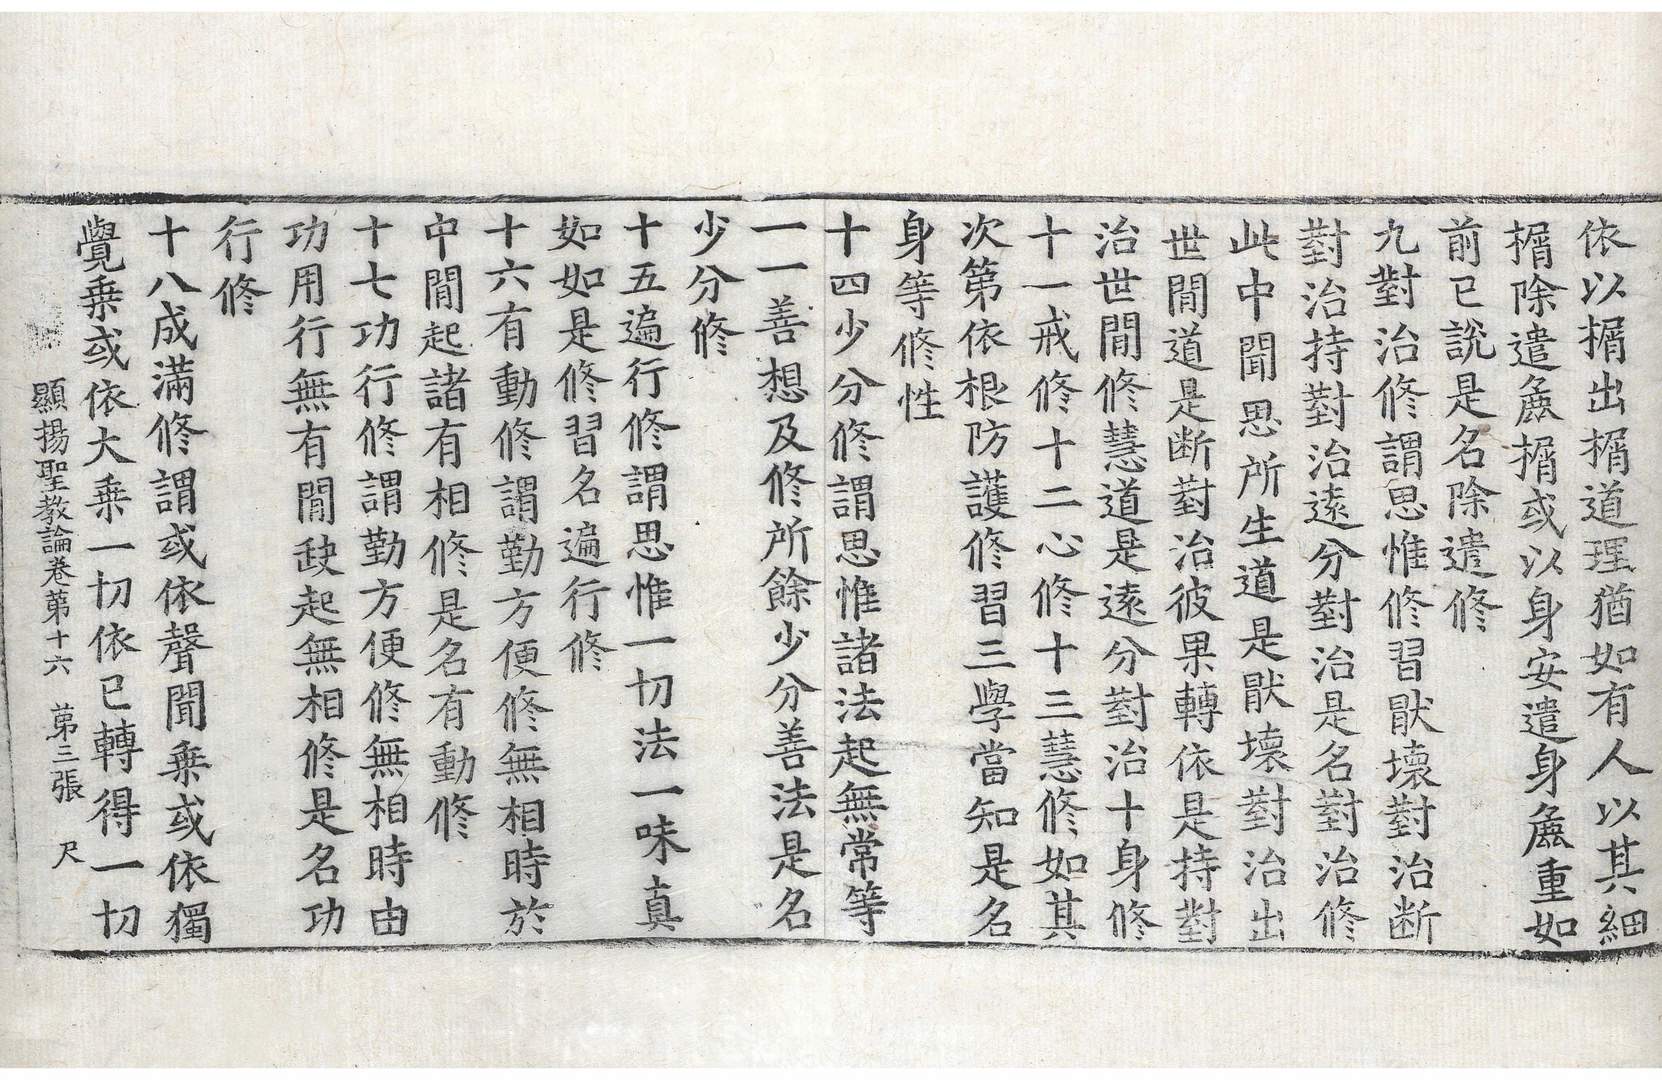 依以榍出榍道理猶如有人以其細
榍除遣麁榍或以身安遣身麁重如
前已說是名除遣修
九對治修謂思惟修習猒壞對治断
對治持對治遠分對治是名對治修
此中聞思所生道是猒壞對治出
世閒道是断對治彼果轉依是持對
治世閒修慧道是遠分對治十身修
十一戒修十二心修十三慧修如其
次第依根防護修習三學當知是名
身等修性
十四少分修謂思惟諸法起無常等
一一善想及修所餘少分善法是名
少分修
十五遍行修謂思惟一切法一味真
如如是修習名遍行修
十六有動修謂勤方便修無相時於
中閒起諸有相修是名有動修
十七功行修謂勤方便修無相時由
功用行無有閒缺起無相修是名功
行修
十八成滿修謂或依聲聞乗或依獨
覺乗或依大乗一切依已轉得一切
顯揚聖教論卷第十六　第三張　尺